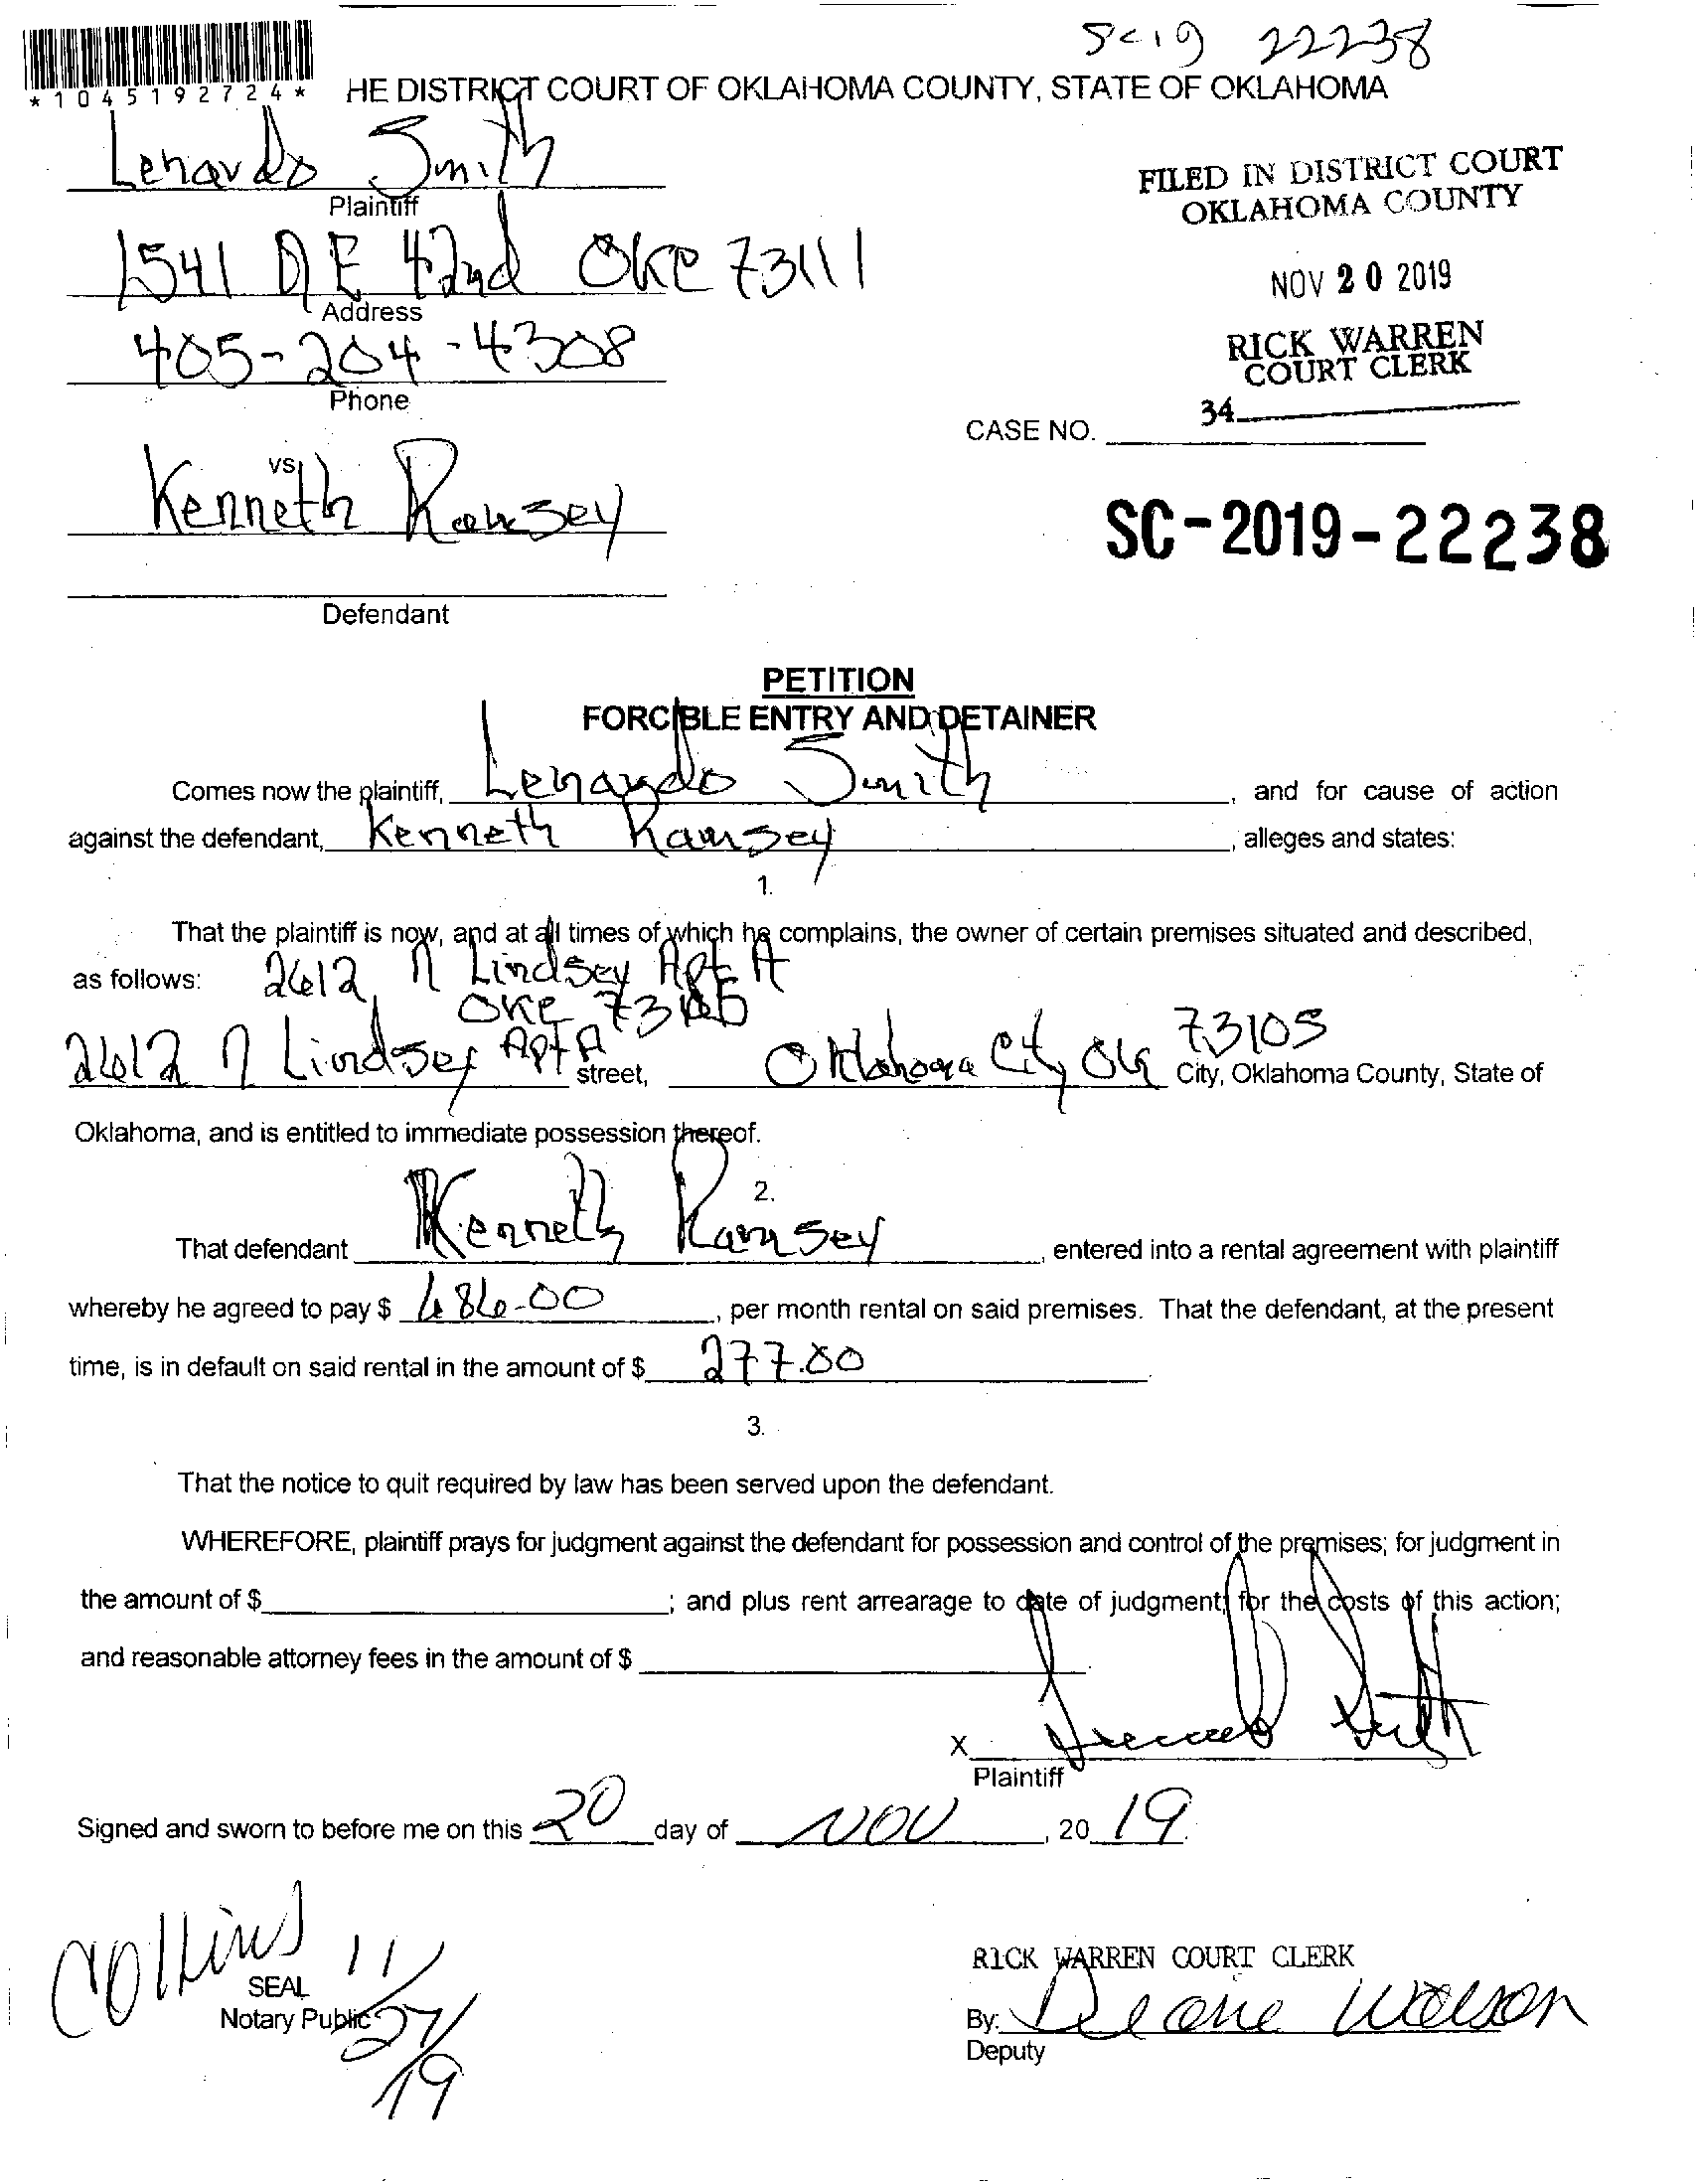 SC19 22238
*1045192724*
HE DISTRICT COURT OF OKLAHOMA COUNTY, STATE OF OKLAHOMA
Lenardo Smith
Plaintiff
FILED IN DISTRICT COURT
OKLAHOMA COUNTY
1541 N E 42nd OKC 73111
Address
NOV 20 2019
405-204-4308
Phone
RICK WARREN
COURT CLERK
34
CASE NO.
vs
Kenneth Ramsey
SC-2019-22238
Defendant
PETITION
FORCIBLE ENTRY AND DETAINER
Comes now the plaintiff, Lenardo Smith, and for cause of action
against the defendant, Kenneth Ramsey, alleges and states:
1.
That the plaintiff is now, and at all times of which he complains, the owner of certain premises situated and described,
as follows: 2612 N Lindsey Apt A
OKC 73105
2612 N Lindsey Apt A street, Oklahoma City Ok 73105 City, Oklahoma County, State of
Oklahoma, and is entitled to immediate possession thereof.
2.
That defendant Kenneth Ramsey, entered into a rental agreement with plaintiff
whereby he agreed to pay $ 686.00, per month rental on said premises. That the defendant, at the present
time, is in default on said rental in the amount of $ 277.00
3.
That the notice to quit required by law has been served upon the defendant.
WHEREFORE, plaintiff prays for judgment against the defendant for possession and control of the premises; for judgment in
the amount of $ ; and plus rent arrearage to date of judgment; for the costs of this action;
and reasonable attorney fees in the amount of $ .
X Lenardo Smith
Plaintiff
Signed and sworn to before me on this 20 day of NOV, 20 19.
Collins 11/27/19
SEAL
Notary Public
RICK WARREN COURT CLERK
By:
Deputy